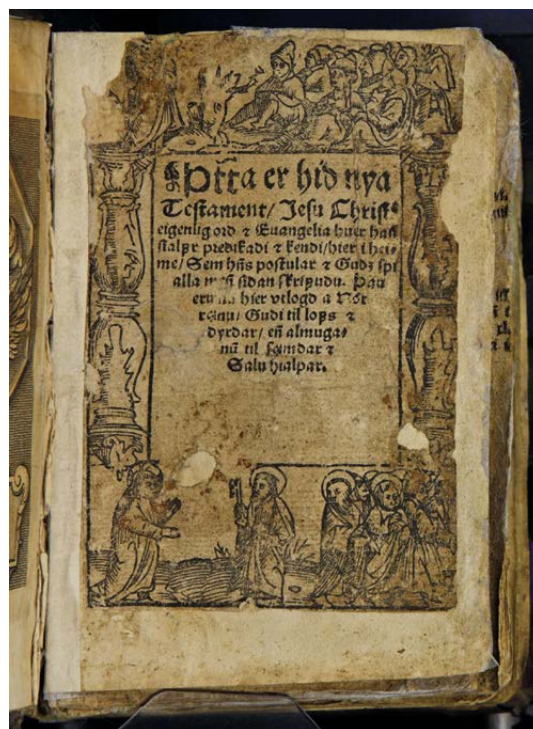 Þetta er hid nya
Testament/ Jesu Christi
eigenlig ord ⁊ Euangelia huer hañ
sialfr predikadi ⁊ kendi/ hier i hei-
me/ Sem hñs postular ⁊ Gudz spi
alla sidan skrifudu. Þau
eru nu hier vtlogd a Nor
rænu/ Gudi til lofs ⁊
dyrdar/ eñ almuga-
nũ til sæmdar ⁊
Salu hialpar.